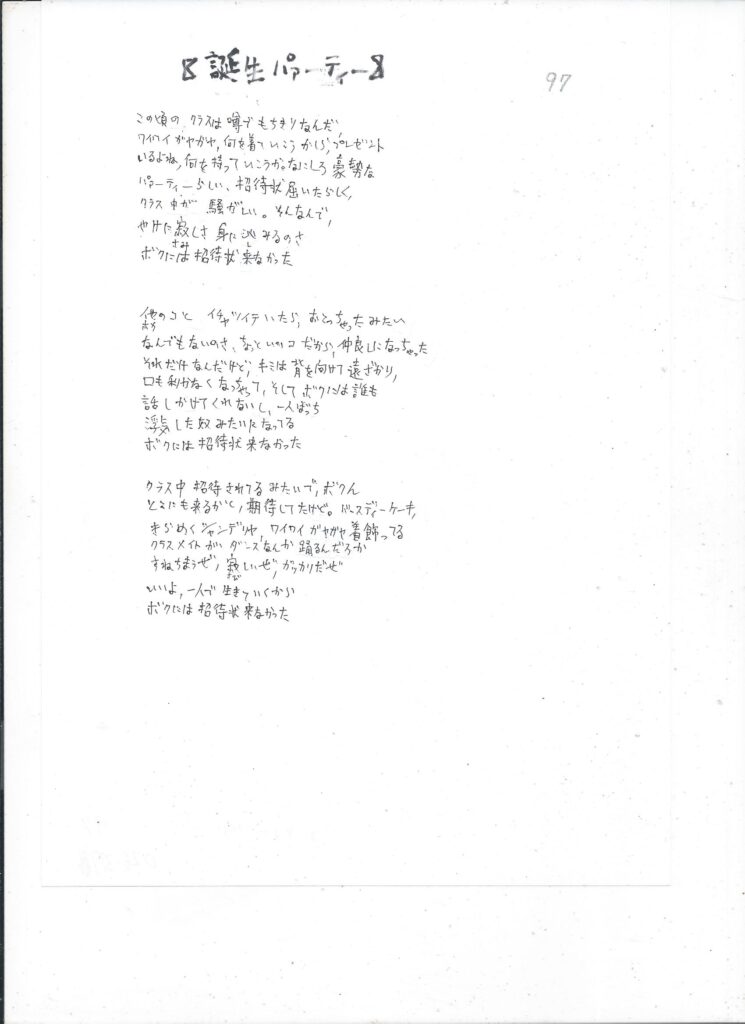 誕生パァーティー
97
この頃のクラスは噂でもちきりなんだ、
ワイワイガヤガヤ、何を着ていこうかしら、プレゼント
いるよね、何を持っていこうか。なにしろ豪勢な
パァーティーらしい、招待状届いたらしく、
クラス中が騒がしい。そんなんで、
やけに寂しさ身に沁みるのさ
さみ
し
ボクには招待状来なかった
他のコとイチャツイテいたら、おこっちゃったみたい
ホカ
なんでもないのさ、ちょといいコだから、仲良しになっちゃった
それだけなんだけど、キミは背を向けて遠ざかり、
口も利かなくなっちゃって、そしてボクには誰も
話しかけてくれないし、一人ぼっち
浮気した奴みたいになってる
ボクには招待状来なかった
クラス中招待されてるみたいで、ボクん
とこにも来るかと、期待してたけど。バースディーケーキ、
きらめくシャンデリヤ、ワイワイガヤガヤ着飾ってる
クラスメイトがダンスなんか踊るんだろか
すねちまうぜ、寂しいぜ、がっかりだぜ
さび
いいよ、一人で生きていくから
ボクには招待状来なかった